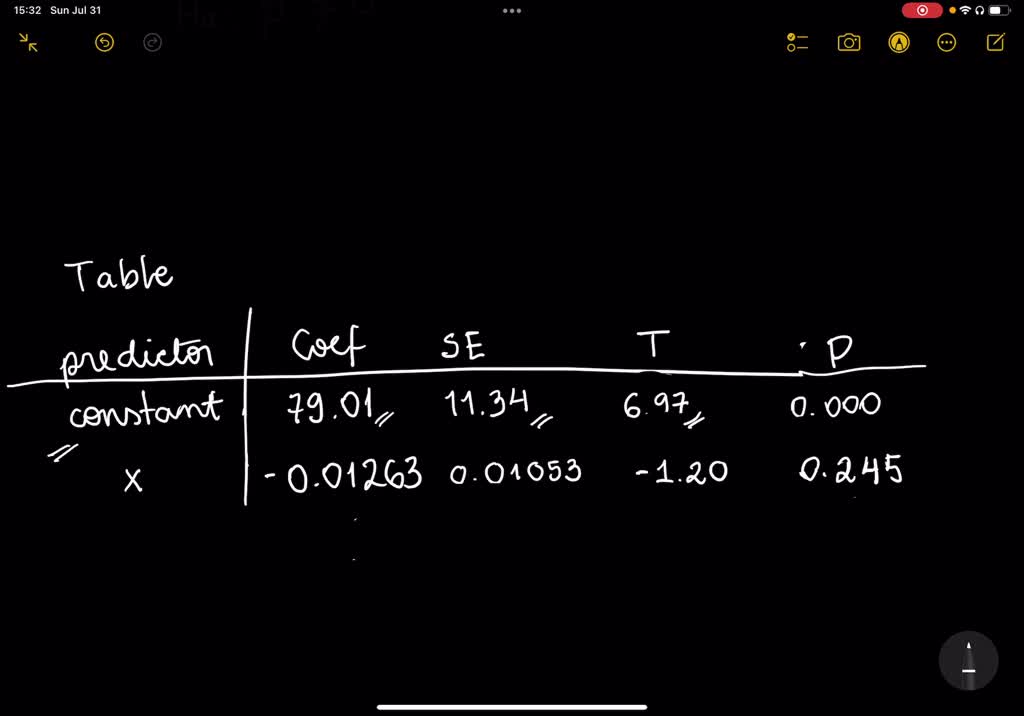 15:32 Sun Jul 31
Table
predictor Coef SE T P
constant 79.01 11.34 6.97 0.000
x -0.01263 0.01053 -1.20 0.245